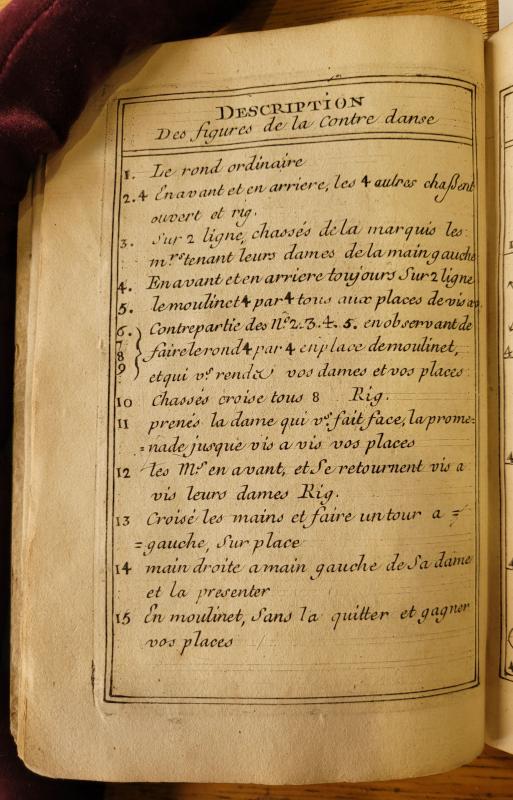 DESCRIPTION
Des figures de la Contre danse
1. Le rond ordinaire
2. 4 En avant et en arriere, les 4 autres chaßent
ouvert et rig.
3. Sur 2 ligne, chassés de la marquis les
mrs tenant leurs dames de la main gauche
4. En avant et en arriere toujours Sur 2 ligne
5. le moulinet 4 par 4 tous aux places de vis a
6. Contrepartie des Nos 2. 3. 4. 5. en observant de
7
8 faire le rond 4 par 4 en place de moulinet,
9 et qui vs rend a vos dames et vos places
10 Chassés croise tous 8 Rig.
11 prenés la dame qui vs fait face, la prome=
=nade jusque vis a vis vos places
12 les Mrs en avant, et Se retournent vis a
vis leurs dames Rig.
13 Croisé les mains et faire un tour a =
=gauche, Sur place
14 main droite a main gauche de Sa dame
et la presenter
15 En moulinet, Sans la quitter et gagner
vos places